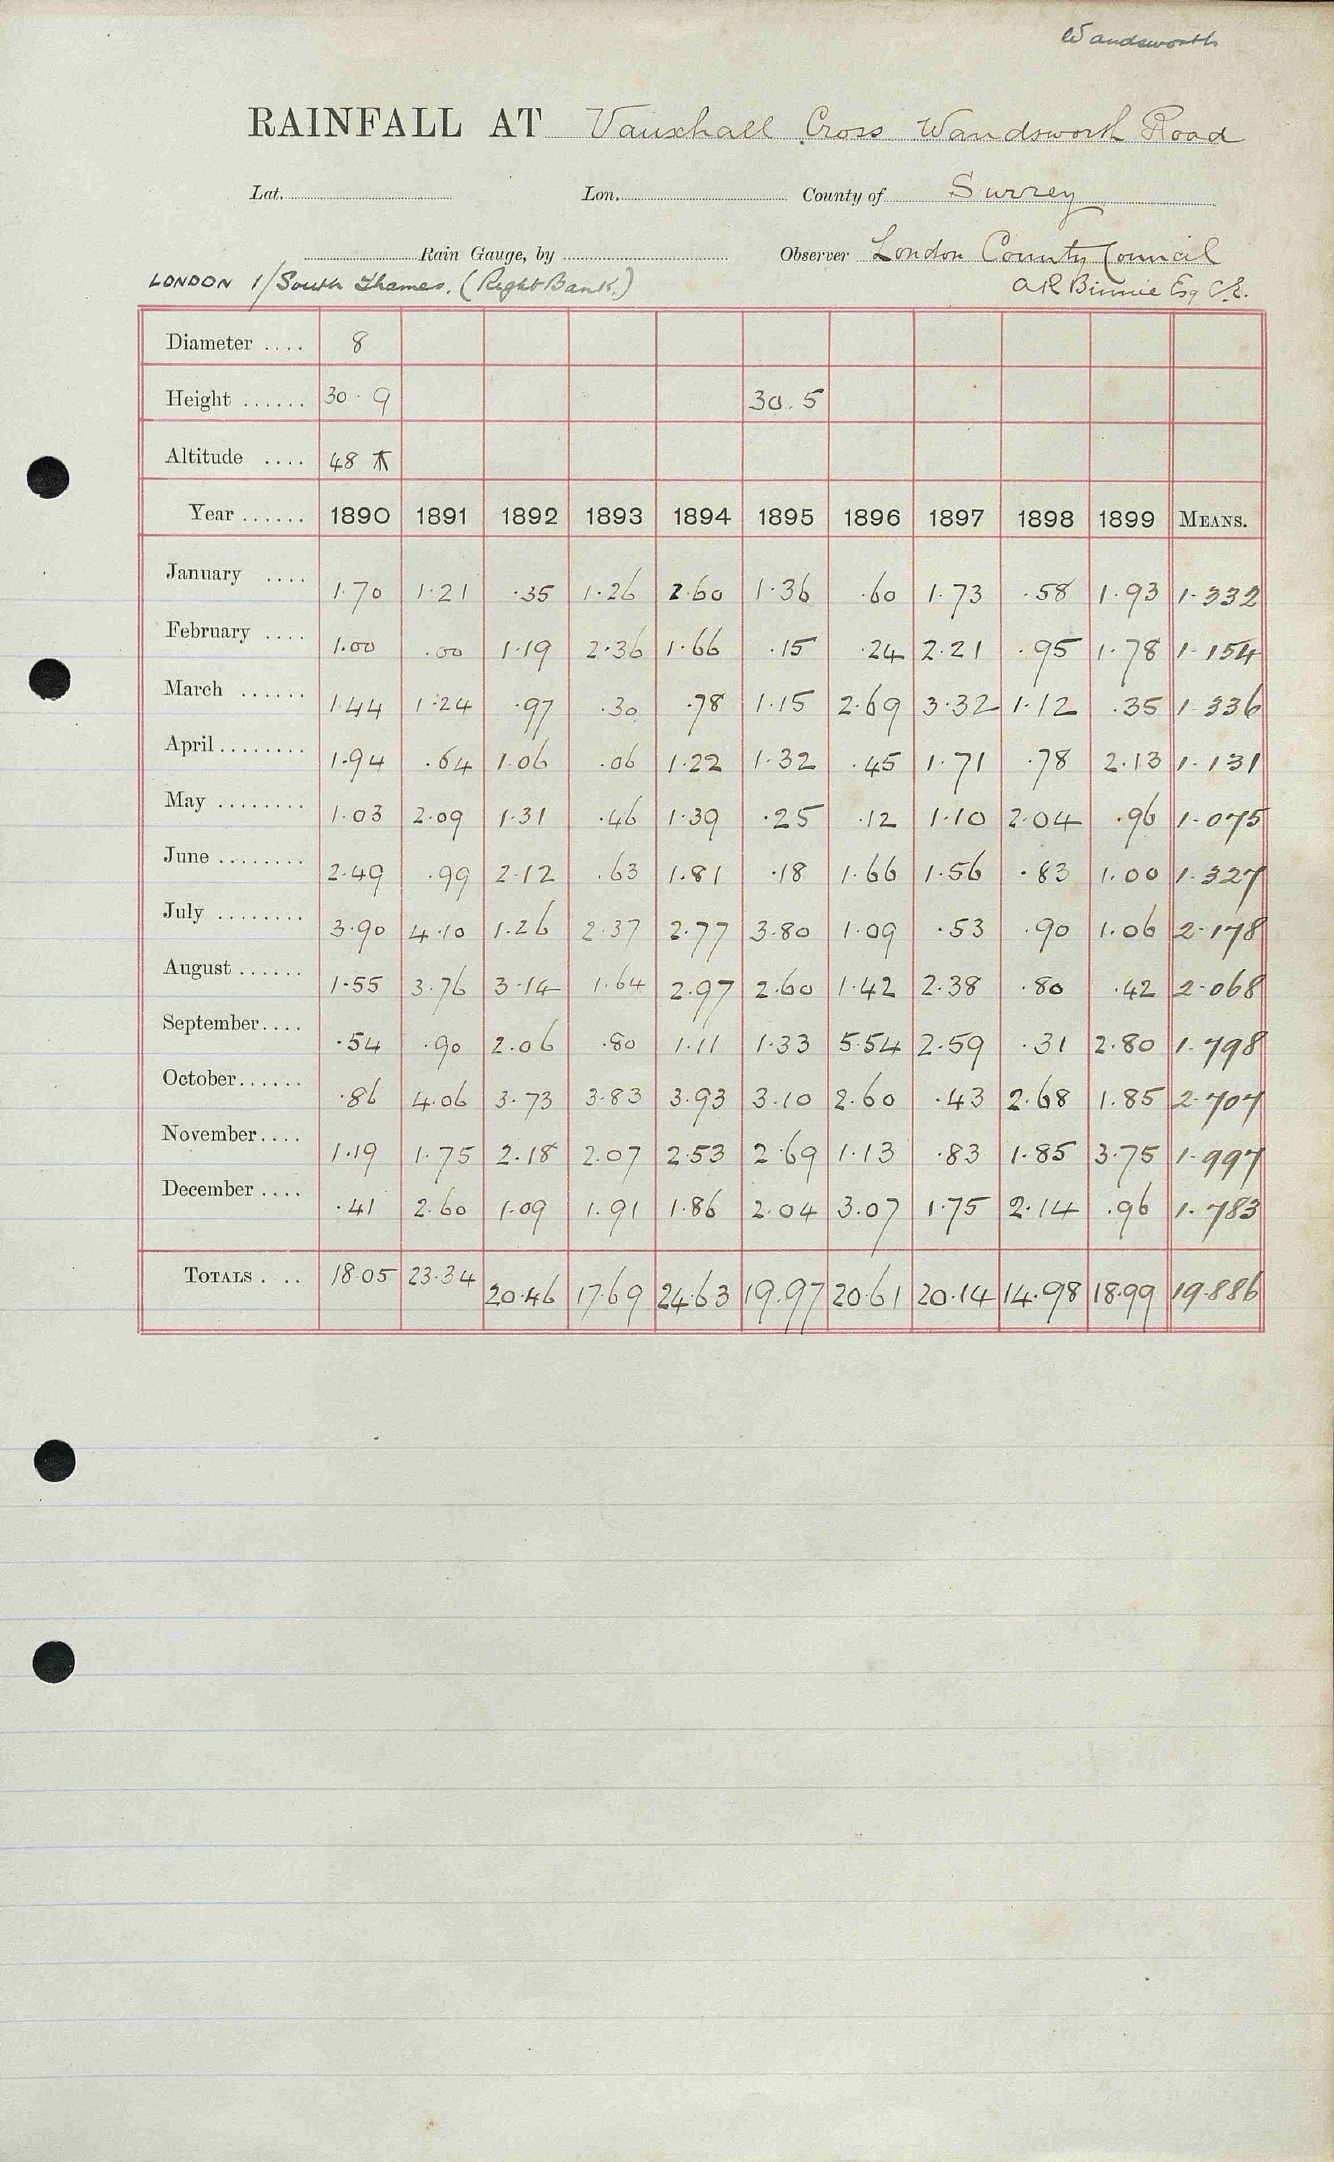 Wandsworth
RAINFALL AT Vauxhall Cross Wandsworth Road
Lat. Lon. County of Surrey
Rain Gauge, by Observer London County Council
LONDON 1/South Thames. (Right Bank.) A R Binnie Esq C.E.
Diameter .... 8
Height ...... 30.9 30.5
Altitude .... 48
Year ...... 1890 1891 1892 1893 1894 1895 1896 1897 1898 1899 MEANS.
January .... 1.70 1.21 .35 1.26 2.60 1.36 .60 1.73 .58 1.93 1.332
February .... 1.00 .00 1.19 2.36 1.66 .15 .24 2.21 .95 1.78 1.154
March ...... 1.44 1.24 .97 .30 .78 1.15 2.69 3.32 1.12 .35 1.336
April ........ 1.94 .64 1.06 .06 1.22 1.32 .45 1.71 .78 2.13 1.131
May ........ 1.03 2.09 1.31 .46 1.39 .25 .12 1.10 2.04 .96 1.075
June ........ 2.49 .99 2.12 .63 1.81 .18 1.66 1.56 .83 1.00 1.327
July ........ 3.90 4.10 1.26 2.37 2.77 3.80 1.09 .53 .90 1.06 2.178
August ...... 1.55 3.76 3.14 1.64 2.97 2.60 1.42 2.38 .80 .42 2.068
September.... .54 .90 2.06 .80 1.11 1.33 5.54 2.59 .31 2.80 1.798
October...... .86 4.06 3.73 3.83 3.93 3.10 2.60 .43 2.68 1.85 2.707
November.... 1.19 1.75 2.18 2.07 2.53 2.69 1.13 .83 1.85 3.75 1.997
December .... .41 2.60 1.09 1.91 1.86 2.04 3.07 1.75 2.14 .96 1.783
TOTALS . .. 18.05 23.34 20.46 17.69 24.63 19.97 20.61 20.14 14.98 18.99 19.886